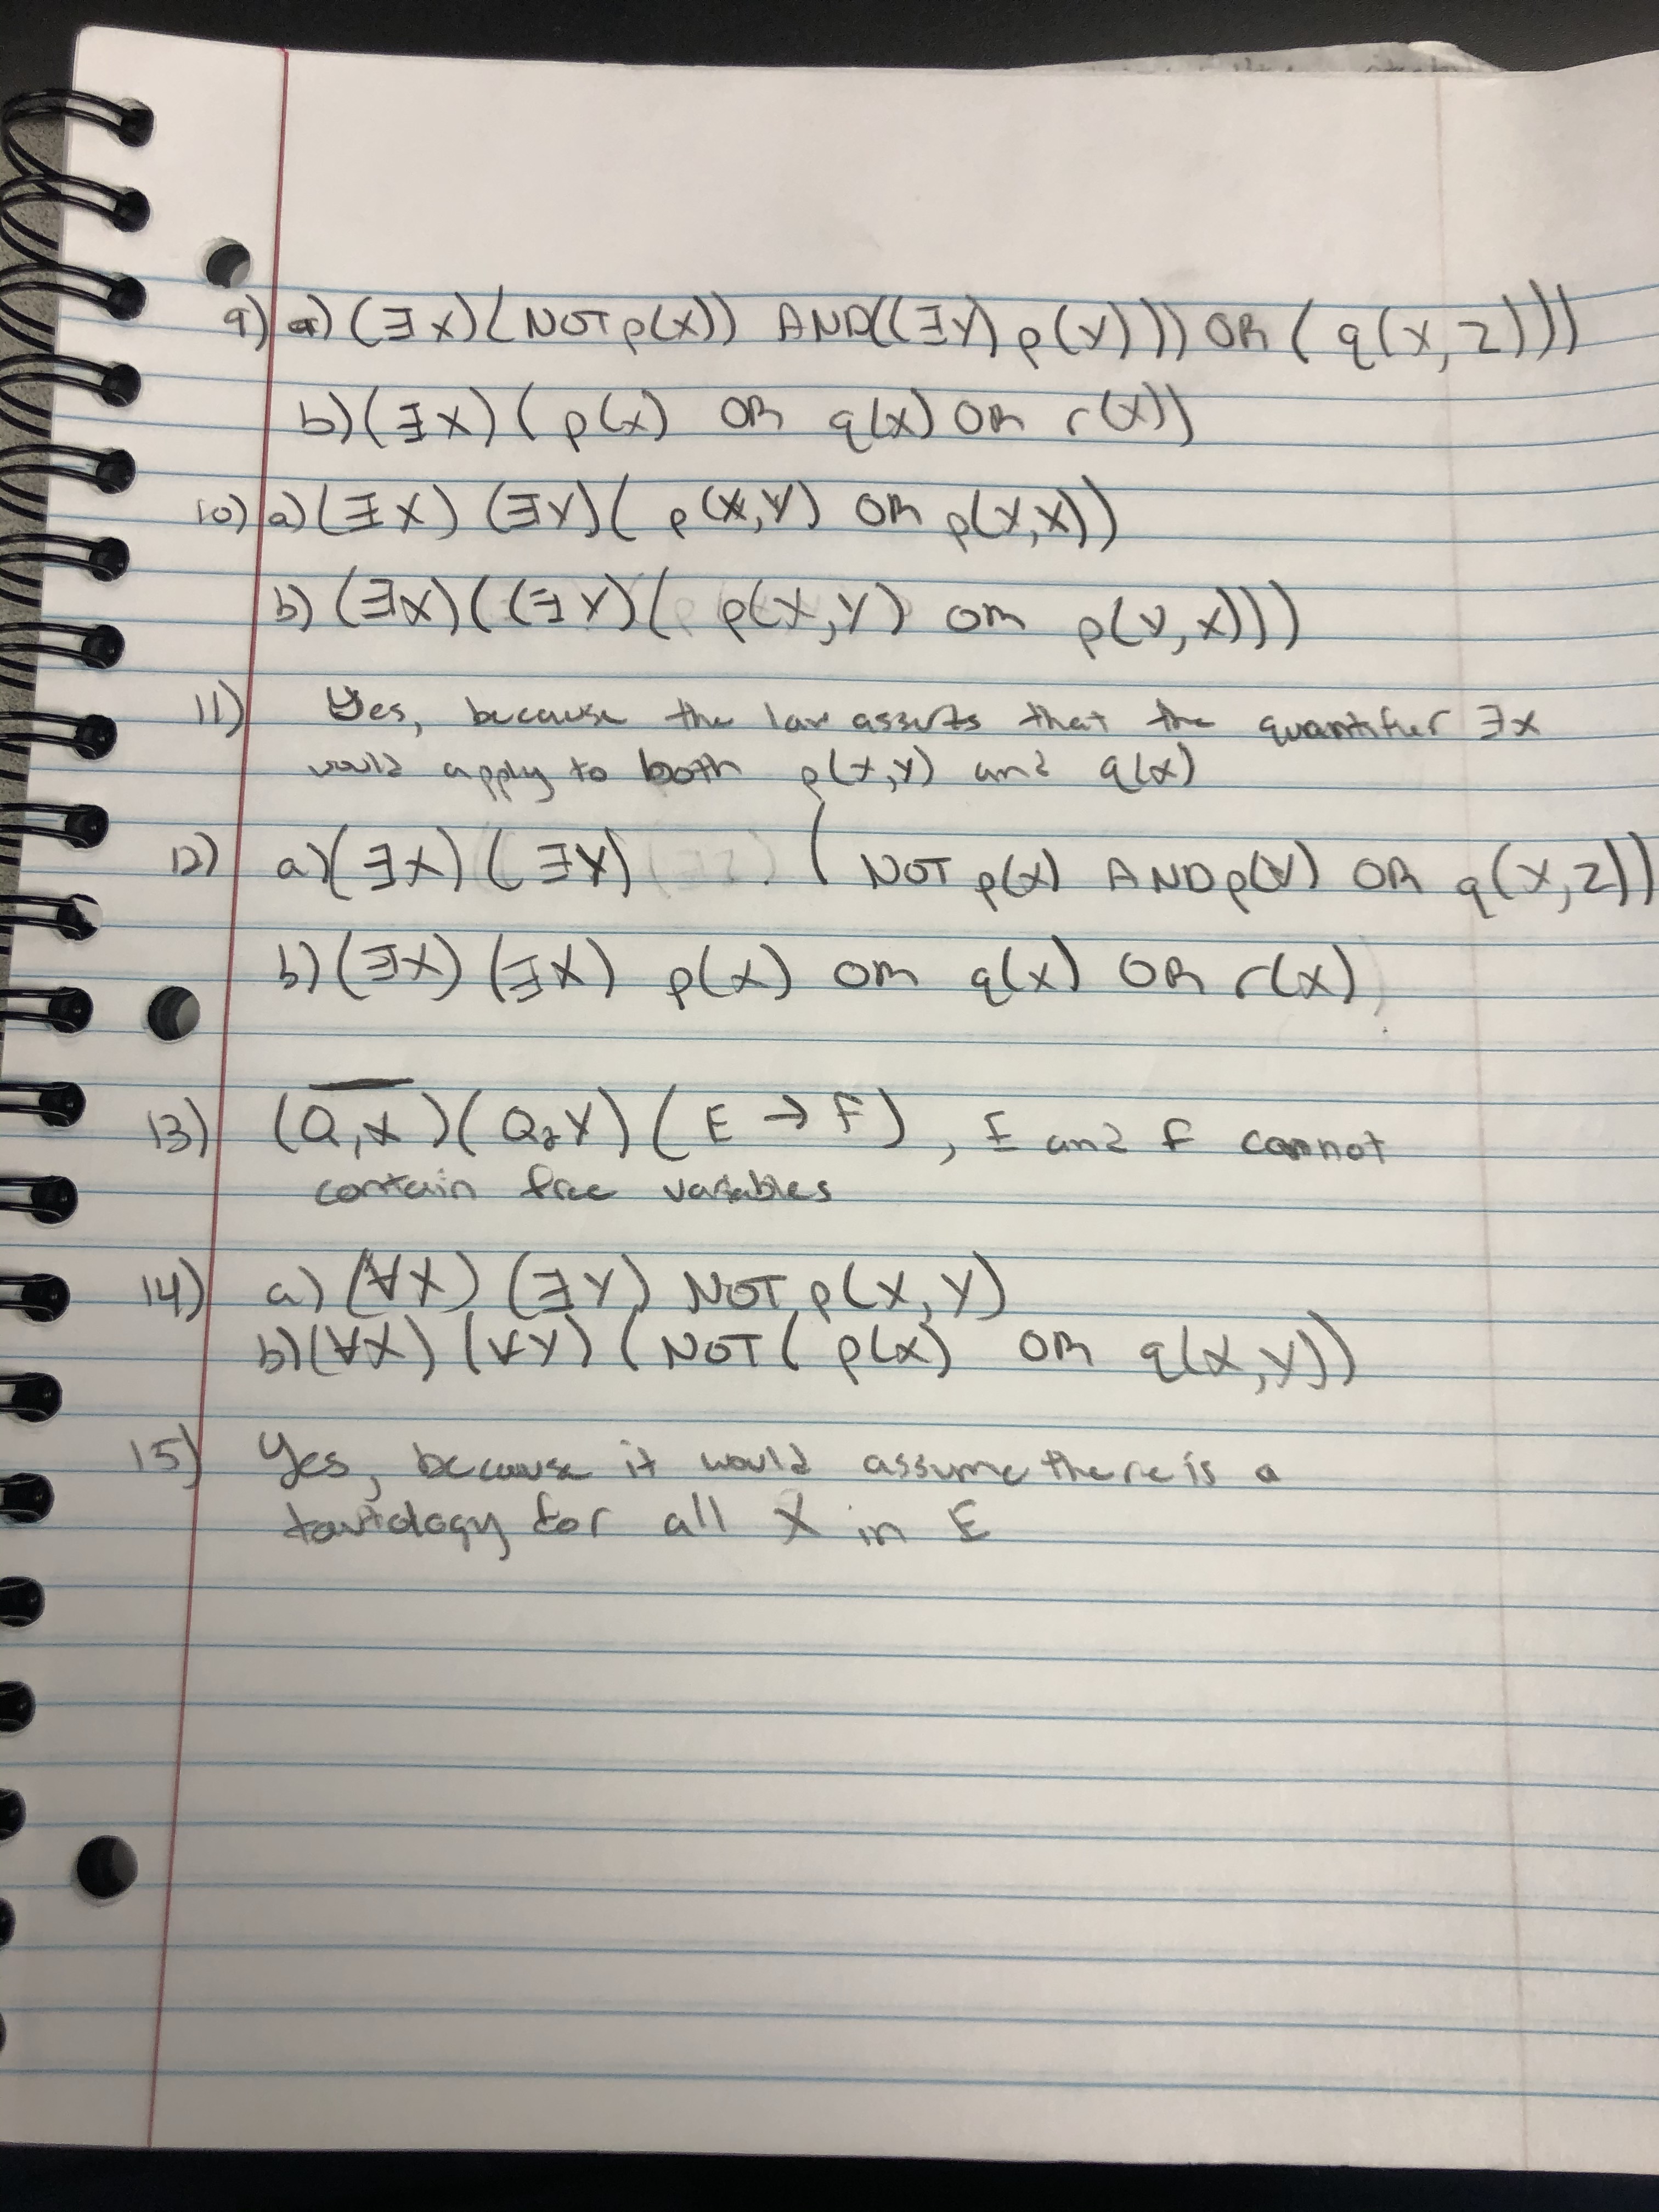 9) a) (∃X)(NOT p(X)) AND((∃Y) p(Y))) OR (q(X,Z)))
b) (∃X)( p(X) OR q(X) OR r(X))
10) a) (∃X) (∃Y)( p(X,Y) OR p(Y,X))
b) (∃X)((∃Y)( p(X,Y) OR p(Y,X)))
11) Yes, because the law asserts that the quantifier ∃x
would apply to both p(X,Y) and q(X)
12) a) (∃X) (∃Y) (NOT p(X) AND p(Y) OR q(X,Z))
b) (∃X) (∃X) p(X) OR q(X) OR r(X)
13) (Q₁X)(Q₂Y)(E → F), E and F cannot
contain free variables
14) a) (∀X) (∃Y) NOT p(X,Y)
b) (∀X) (∀Y) (NOT( p(X) OR q(X,Y))
15) Yes, because it would assume there is a
tautology for all X in E